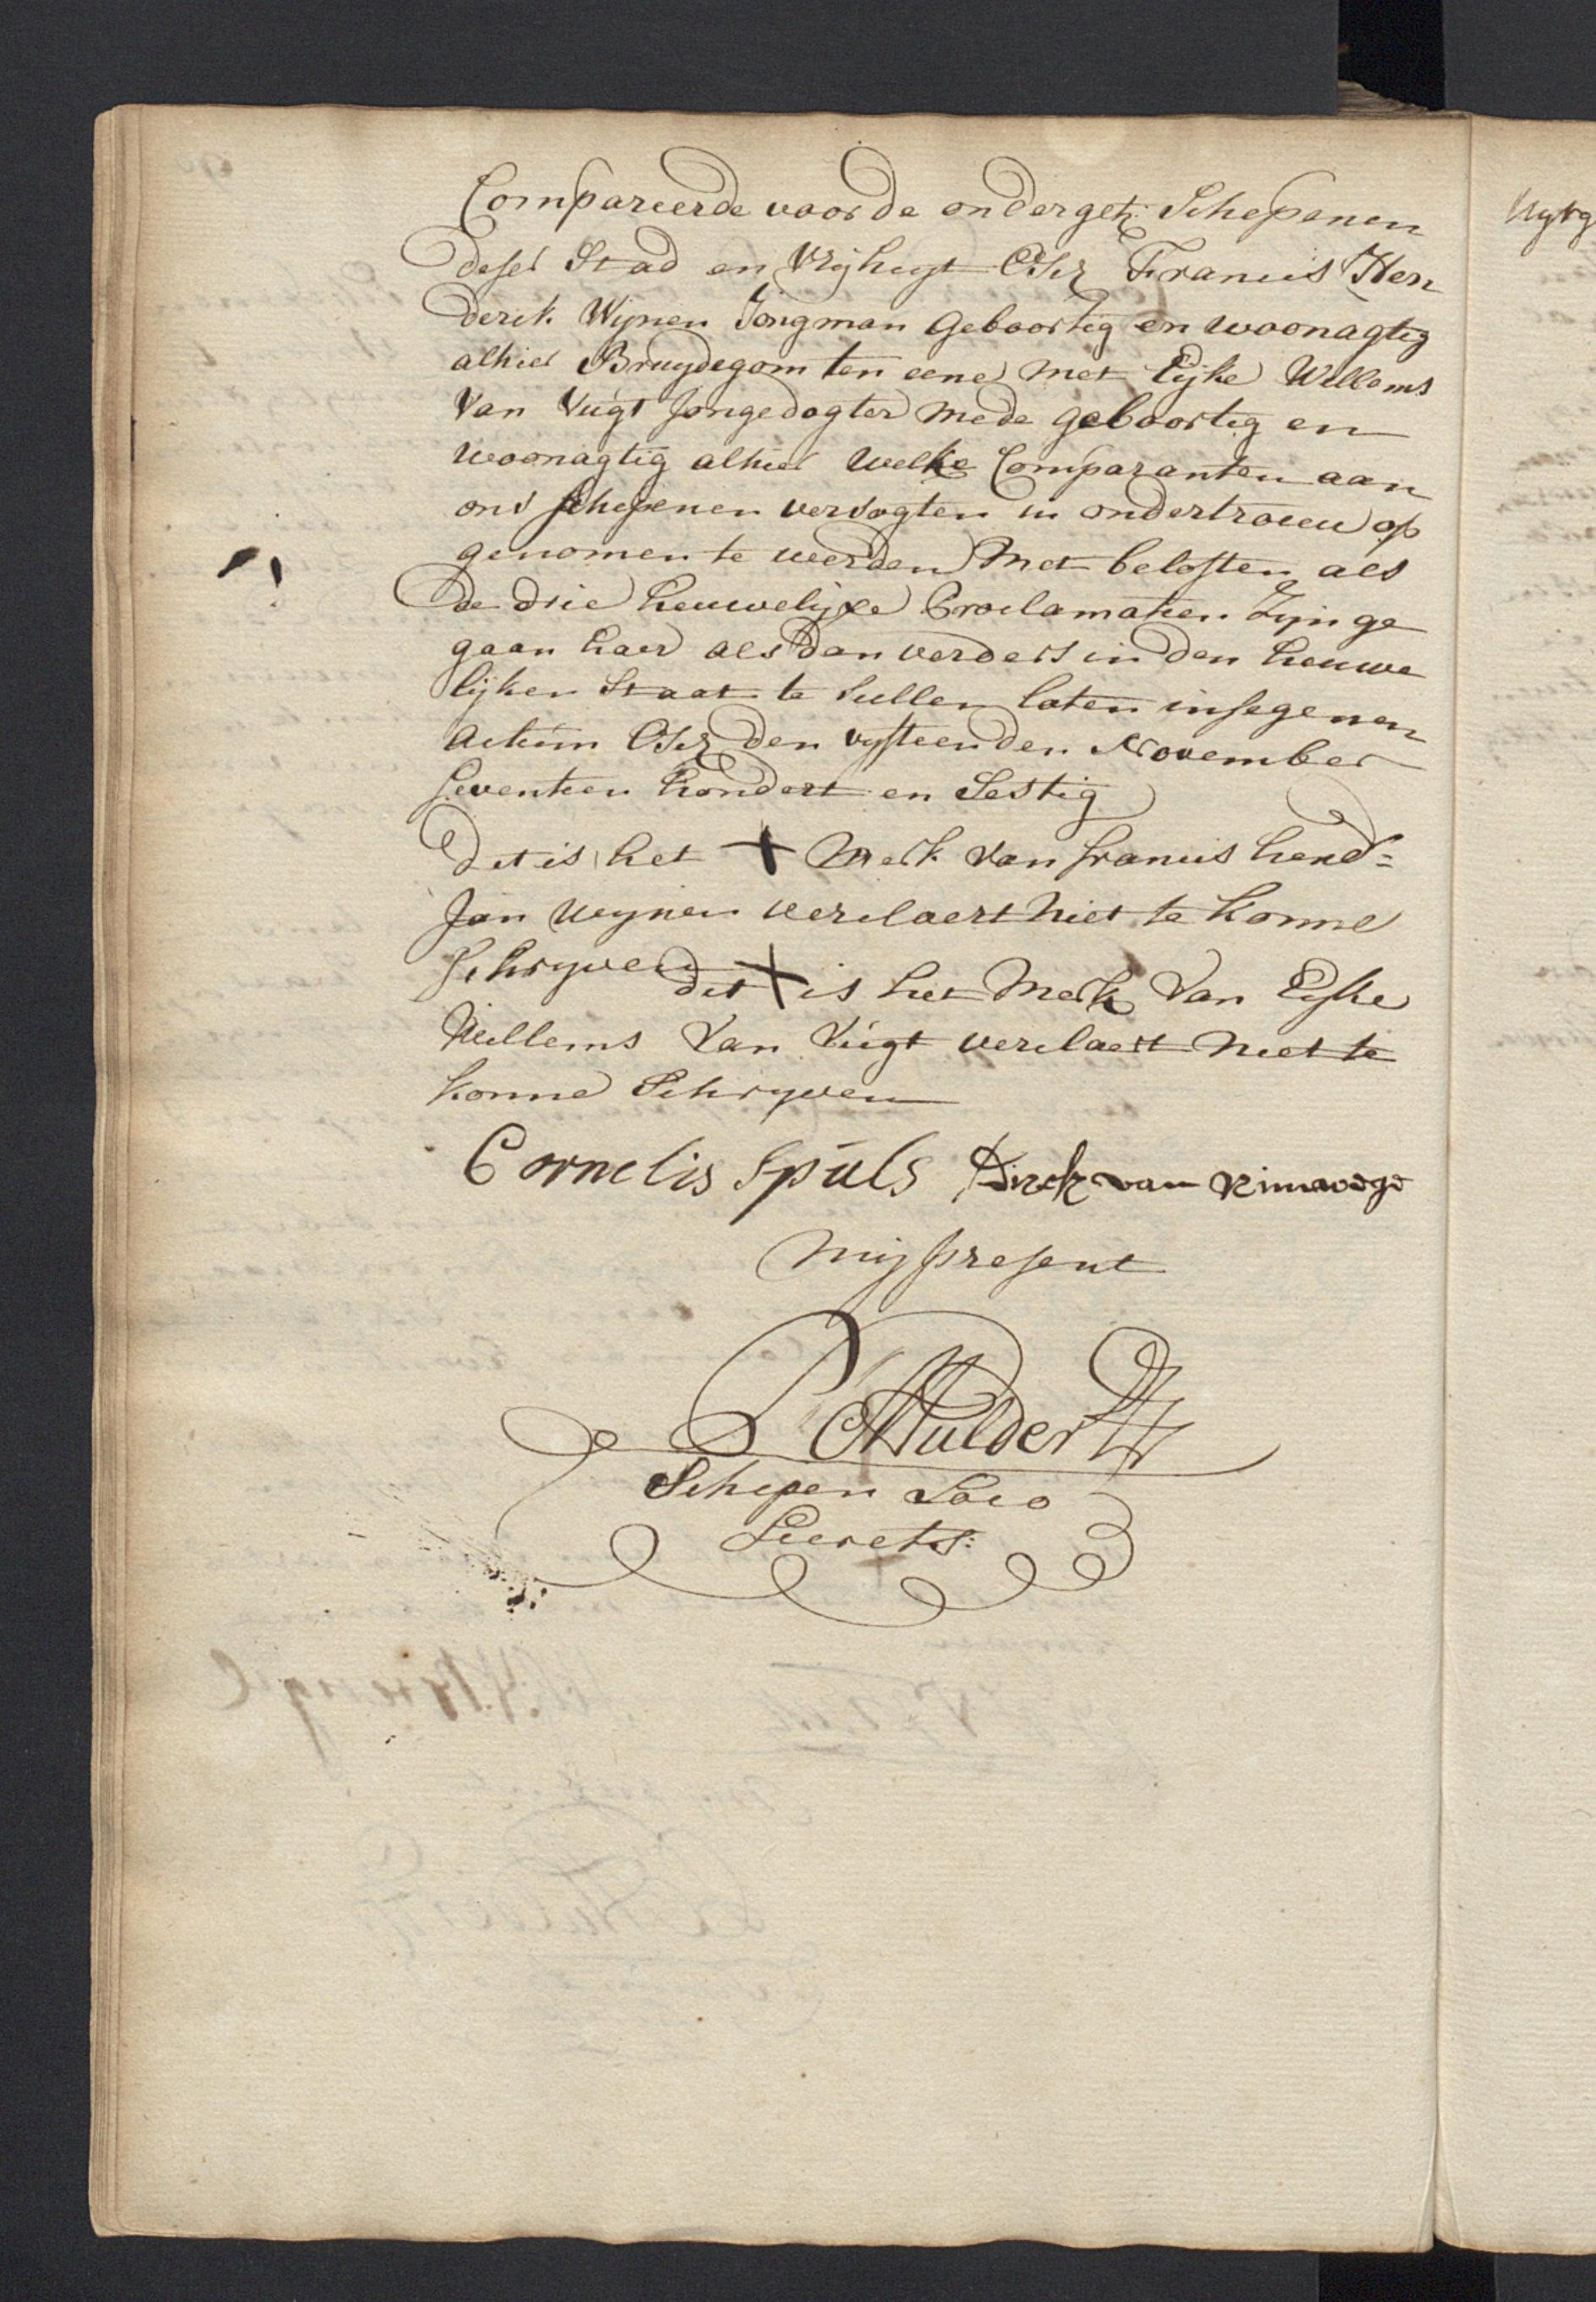 Compareerde voor de ondergetz: Schepenen
deser Stad en Vrijheyt Osz Francis Hen
derik Wijnen Jongman Geboortig en woonagtig
alhier Bruydegom ten eene met Eijke Willems
Van Vugt Jongedogter mede geboortig en
woonagtig alhier welke Comparanten aan
ons schepenen versogten in ondertrouw op
genomen te werden met beloften als
de drie heuwelijxe Proclamatien Zijn ge
gaan haer als dan verders in den heuwe
lijken Staat te sullen laten insegenen
Actum Osz den vyfteenden November
seventien hondert en Sestig
dit is het + Merk van francis hend=
Jan Wynen verclaert niet te konne
schryven
dit + is het Merk Van Eijke
Willems Van Vugt verclaert niet te
konne Schryven
Cornelis Spuls Dirck van Nimwege
Mij present
P Mulder
Schepen Loco
Secrets: